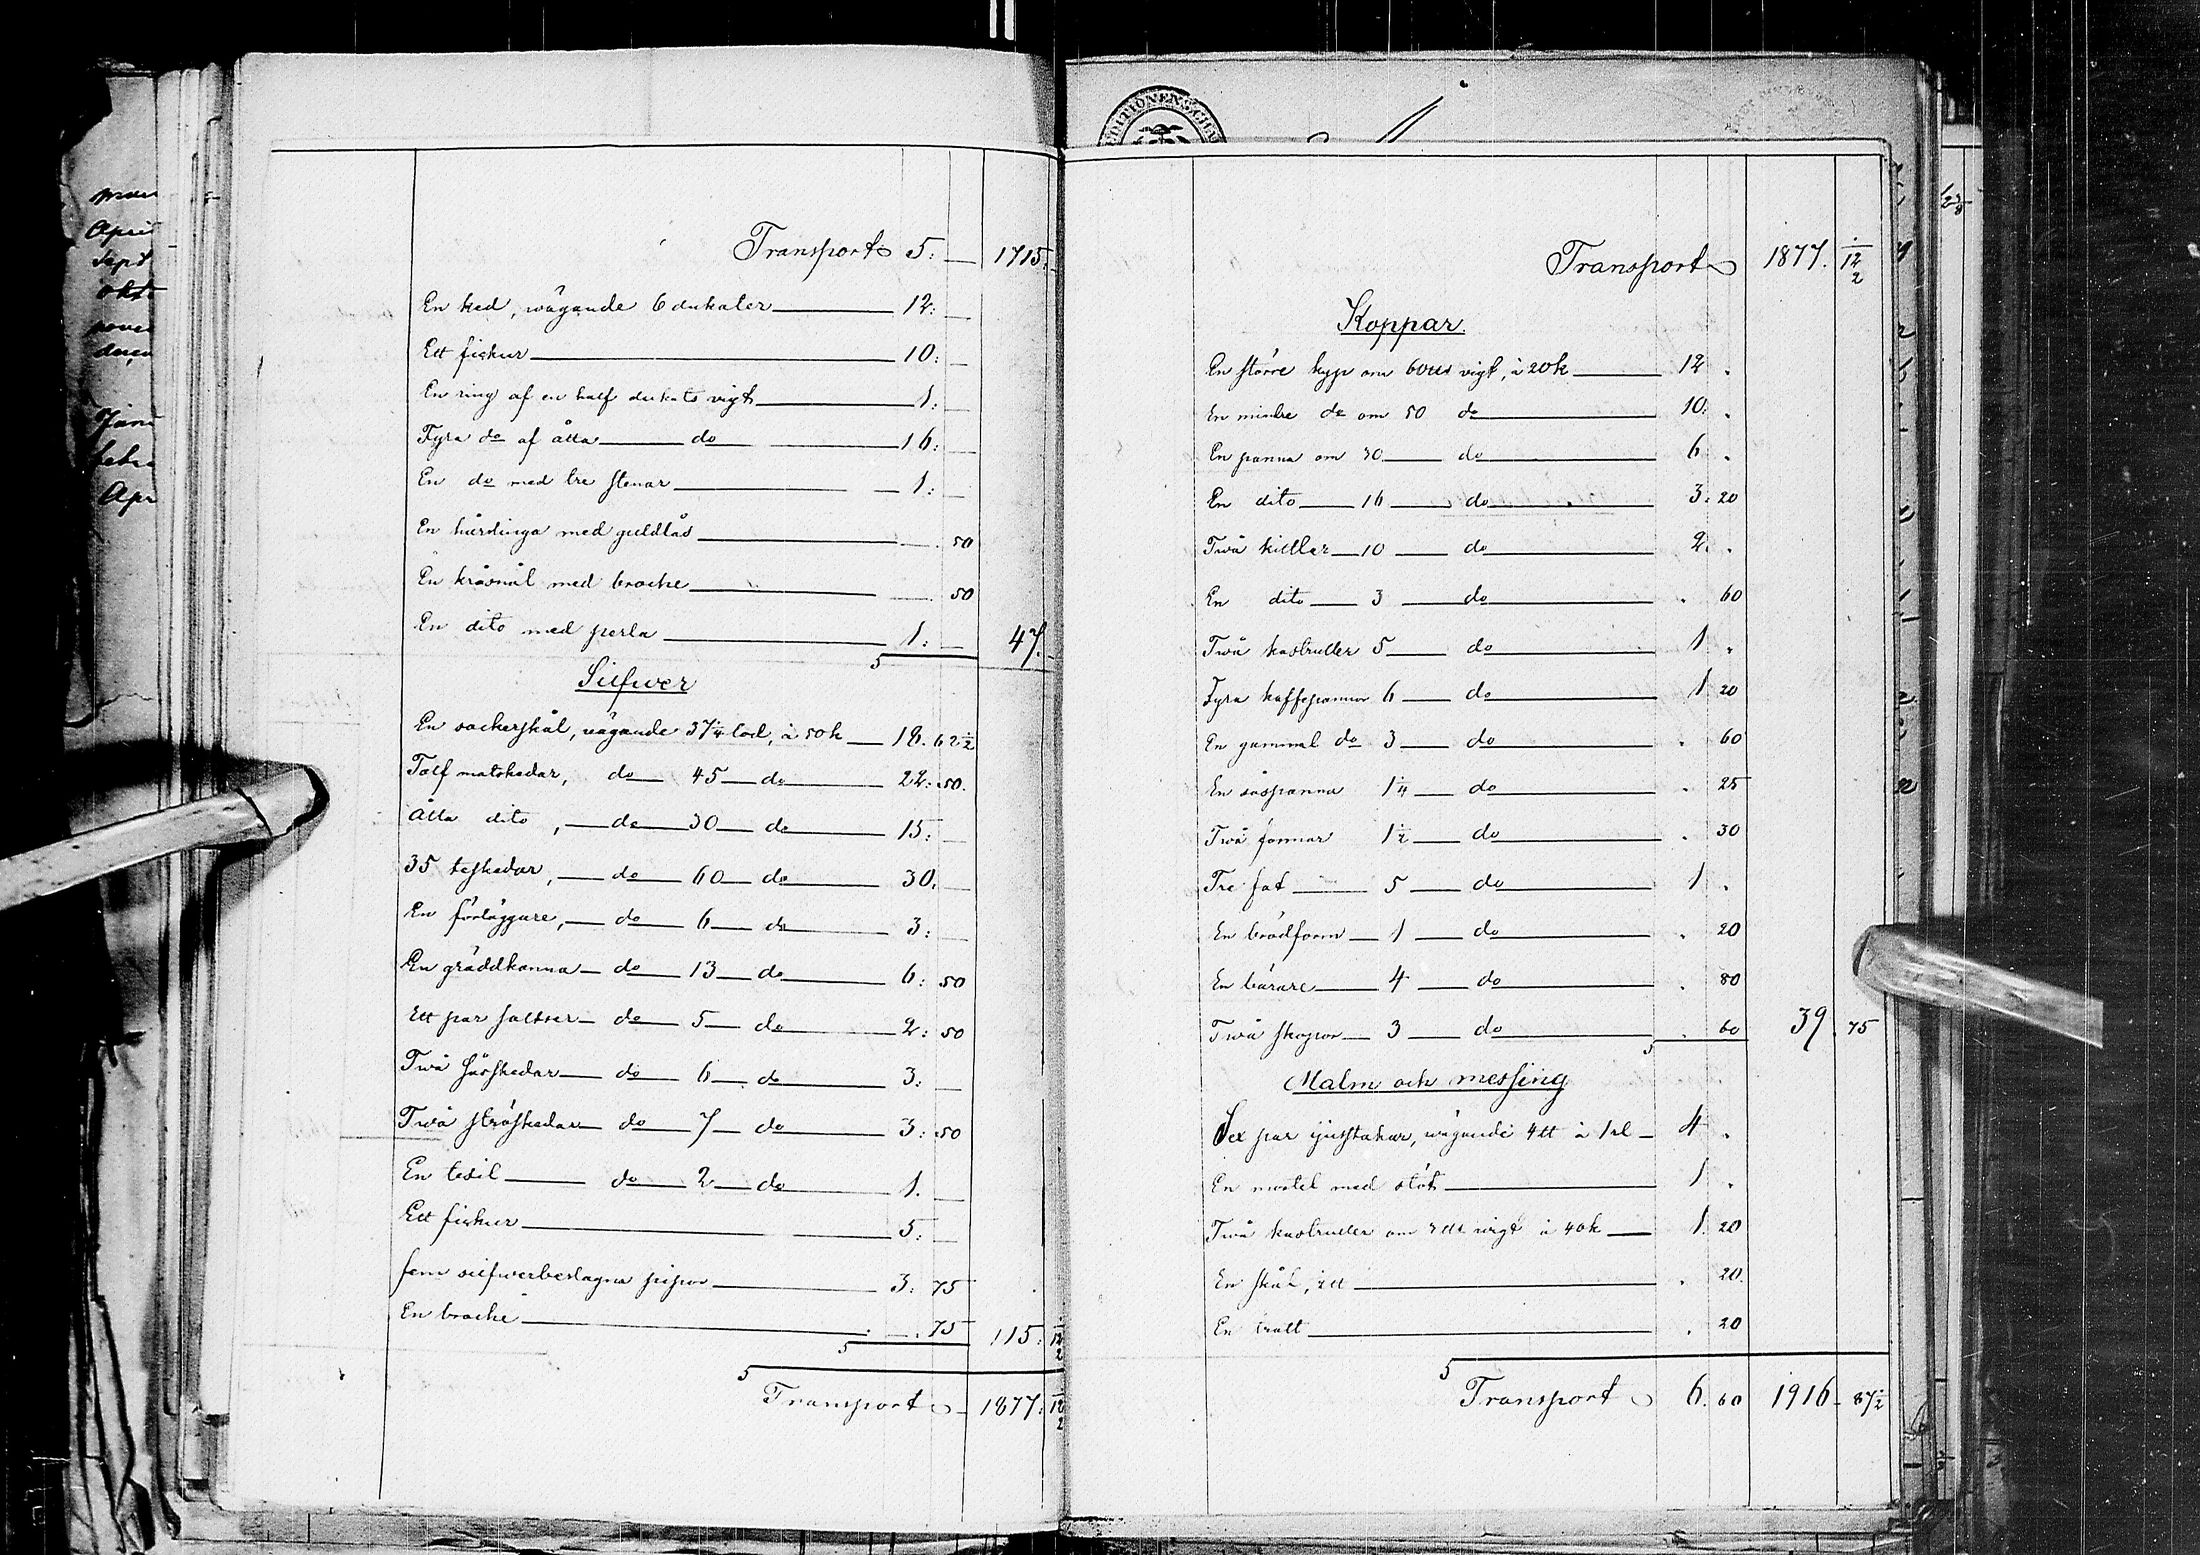 Transport 5: — 1715. —
En ked, wägande 6 dukater — 12: —
Ett fickur — 10: —
En ring af en half dukats vigt — 1: —
Fyra do af åtta — do — 16: —
En do med tre stenar — 1: —
En hårdinga med guldlås — 50
En kråsnål med broche — 50
En dito med perla — 1: — 47. —
Silfwer
En sockerskål, vägande 37 1/4 lod, à 50 k — 18. 62 1/2
Tolf matskedar, do — 45 — do — 22: 50.
Åtta dito, — do — 30 — do — 15: —
35 teskedar, — do — 60 — do — 30. —
En förläggare, — do — 6 — do — 3: —
En gräddkanna — do — 13 — do — 6: 50
Ett par saltser — do — 5 — do — 2: 50
Twå såsskedar — do — 6 — do — 3: —
Twå ströskedar — do — 7 — do — 3: 50
En tesil — do — 2 — do — 1. —
Ett fickur — 5: —
fem silfwerbeslagna pipor — 3: 75
En broche — 75 115: 12 1/2
Transport — 1877: 12 1/2
Transport 1877. 12 1/2
Koppar.
En större kyp om 60 ℔ vigt, à 20 k — 12 .
En mindre do om 50 do — 10. .
En panna om 30 — do — 6 .
En dito — 16 — do — 3. 20
Twå kittlar — 10 — do — 2. .
En dito — 3 — do — . 60
Twå kastruller 5 — do — 1 .
Fyra kaffepannor 6 — do — 1 20
En gammal do 3 — do — . 60
En såspanna 1 1/4 — do — . 25
Twå formar 1 1/2 — do — . 30
Tre fat — 5 — do — 1 .
En brödform — 1 — do — . 20
En bärare — 4 — do — . 80
Twå skopor — 3 — do — . 60 39. 75
Malm och messing
Sex par ljusstakar, wägande 4 ℔ à 1 rl — 4 .
En mortel med stöt — 1 .
Twå kastruller om 3 ℔ wigt à 40 k — 1. 20
En skål, 1/2 ℔ — . 20.
En tratt — . 20
Transport 6. 60 1916 — 87 1/2